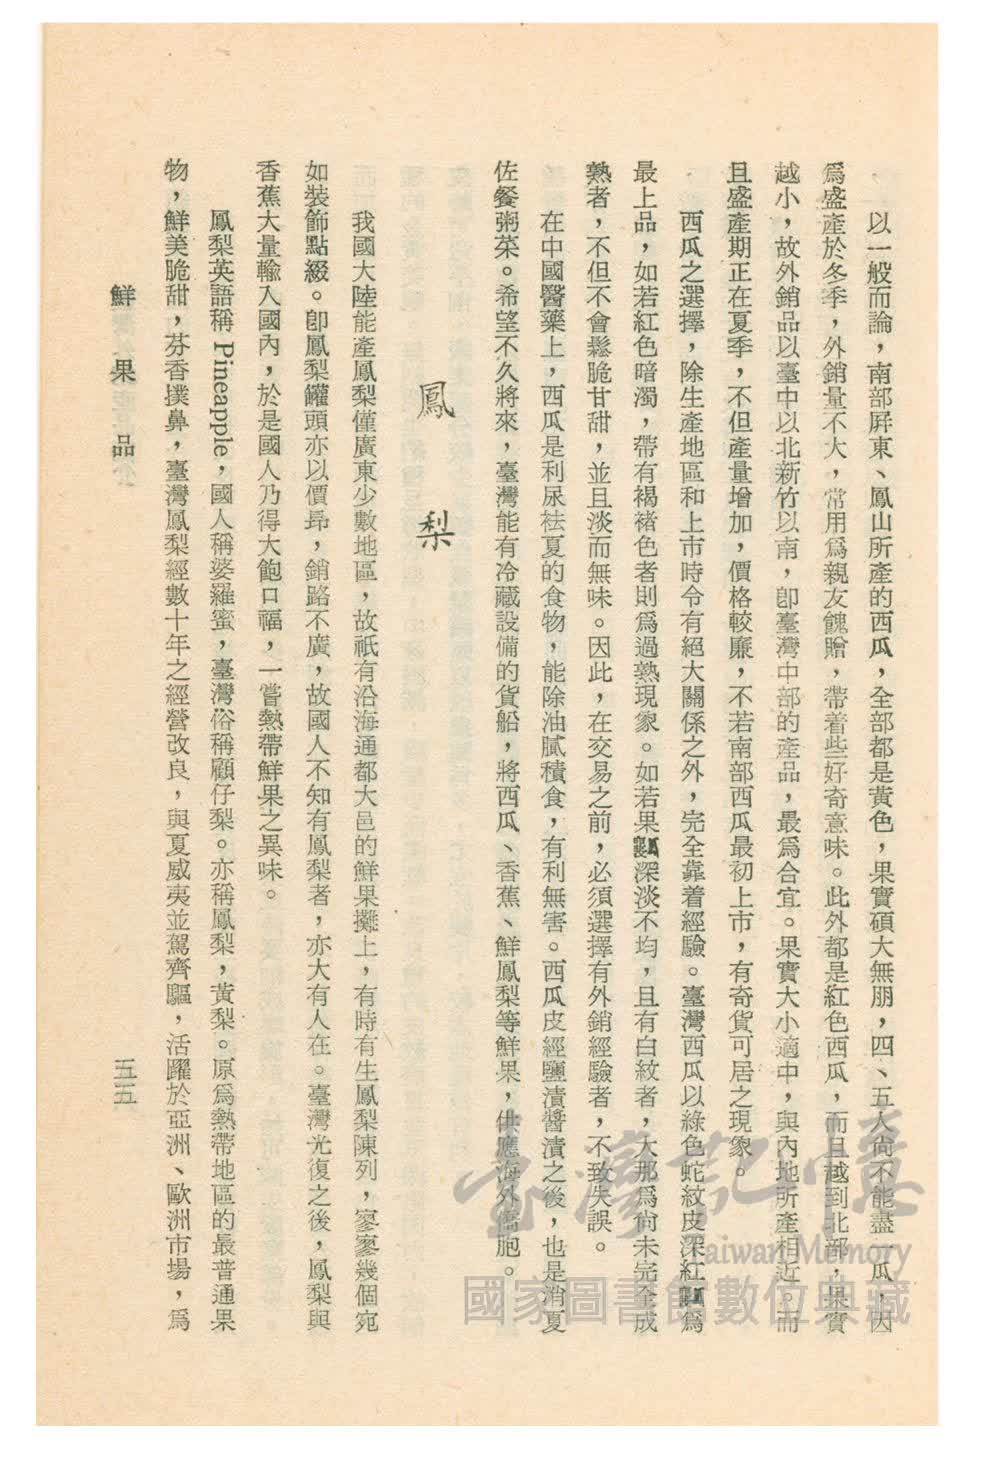 以一般而論，南部屛東、鳳山所產的西瓜，全部都是黃色，果實碩大無朋，四、五人尙不能盡一瓜，因
爲盛產於冬季，外銷量不大，常用爲親友餽贈，帶着些好奇意味。此外都是紅色西瓜，而且越到北部，果實
越小，故外銷品以臺中以北新竹以南，卽臺灣中部的產品，最爲合宜。果實大小適中，與內地所產相近。而
且盛產期正在夏季，不但產量增加，價格較廉，不若南部西瓜最初上市，有奇貨可居之現象。
西瓜之選擇，除生產地區和上市時令有絕大關係之外，完全靠着經驗。臺灣西瓜以綠色蛇紋皮深紅瓤爲
最上品，如若紅色暗濁，帶有褐褚色者則爲過熟現象。如若果瓤深淡不均，且有白紋者，大那爲尙未完全成
熟者，不但不會鬆脆甘甜，並且淡而無味。因此，在交易之前，必須選擇有外銷經驗者，不致失誤。
在中國醫藥上，西瓜是利尿祛夏的食物，能除油膩積食，有利無害。西瓜皮經鹽漬醬漬之後，也是消夏
佐餐粥菜。希望不久將來，臺灣能有冷藏設備的貨船，將西瓜、香蕉、鮮鳳梨等鮮果，供應海外僑胞。
鳳梨
我國大陸能產鳳梨僅廣東少數地區，故祇有沿海通都大邑的鮮果攤上，有時有生鳳梨陳列，寥寥幾個宛
如裝飾點綴。卽鳳梨罐頭亦以價昻，銷路不廣，故國人不知有鳳梨者，亦大有人在。臺灣光復之後，鳳梨與
香蕉大量輸入國內，於是國人乃得大飽口福，一嘗熱帶鮮果之異味。
鳳梨英語稱 Pineapple，國人稱婆羅蜜，臺灣俗稱顧仔梨。亦稱鳳梨，黃梨。原爲熱帶地區的最普通果
物，鮮美脆甜，芬香撲鼻，臺灣鳳梨經數十年之經營改良，與夏威夷並駕齊驅，活躍於亞洲、歐洲市場，爲
鮮果品
五五
臺灣記憶
Taiwan Memory
國家圖書館數位典藏